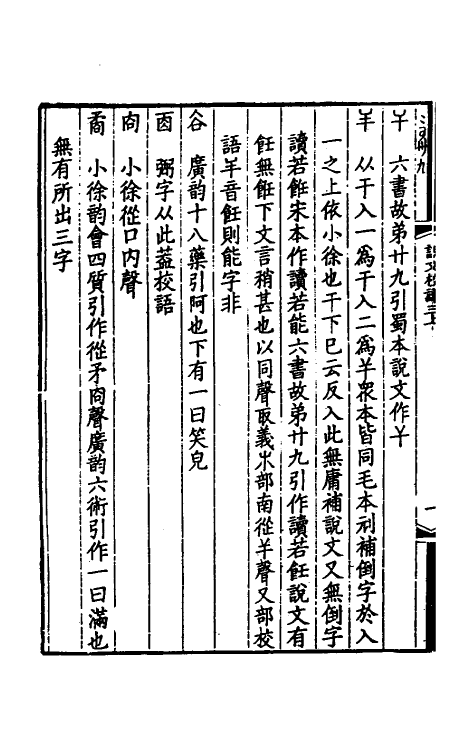 𢆉 六書故弟廿九引蜀本說文作𢆉
𢆉 从干入一爲干入二爲𢆉衆本皆同毛本刓補倒字於入
一之上依小徐也干下巳云反入此無庸補說文又無倒字
讀若飪宋本作讀若能六書故弟廿九引作讀若飪說文有
飪無餁下文言稍甚也以同聲取義𣎵部南從𢆉聲又部校
語𢆉音飪則能字非
谷 廣韵十八藥引阿也下有一曰笑皃
㐁 弼字从此葢校語
㕯 小徐從口內聲
矞 小徐韵會四質引作從矛㕯聲廣韵六術引作一曰滿也
無有所出三字
說文校議三上